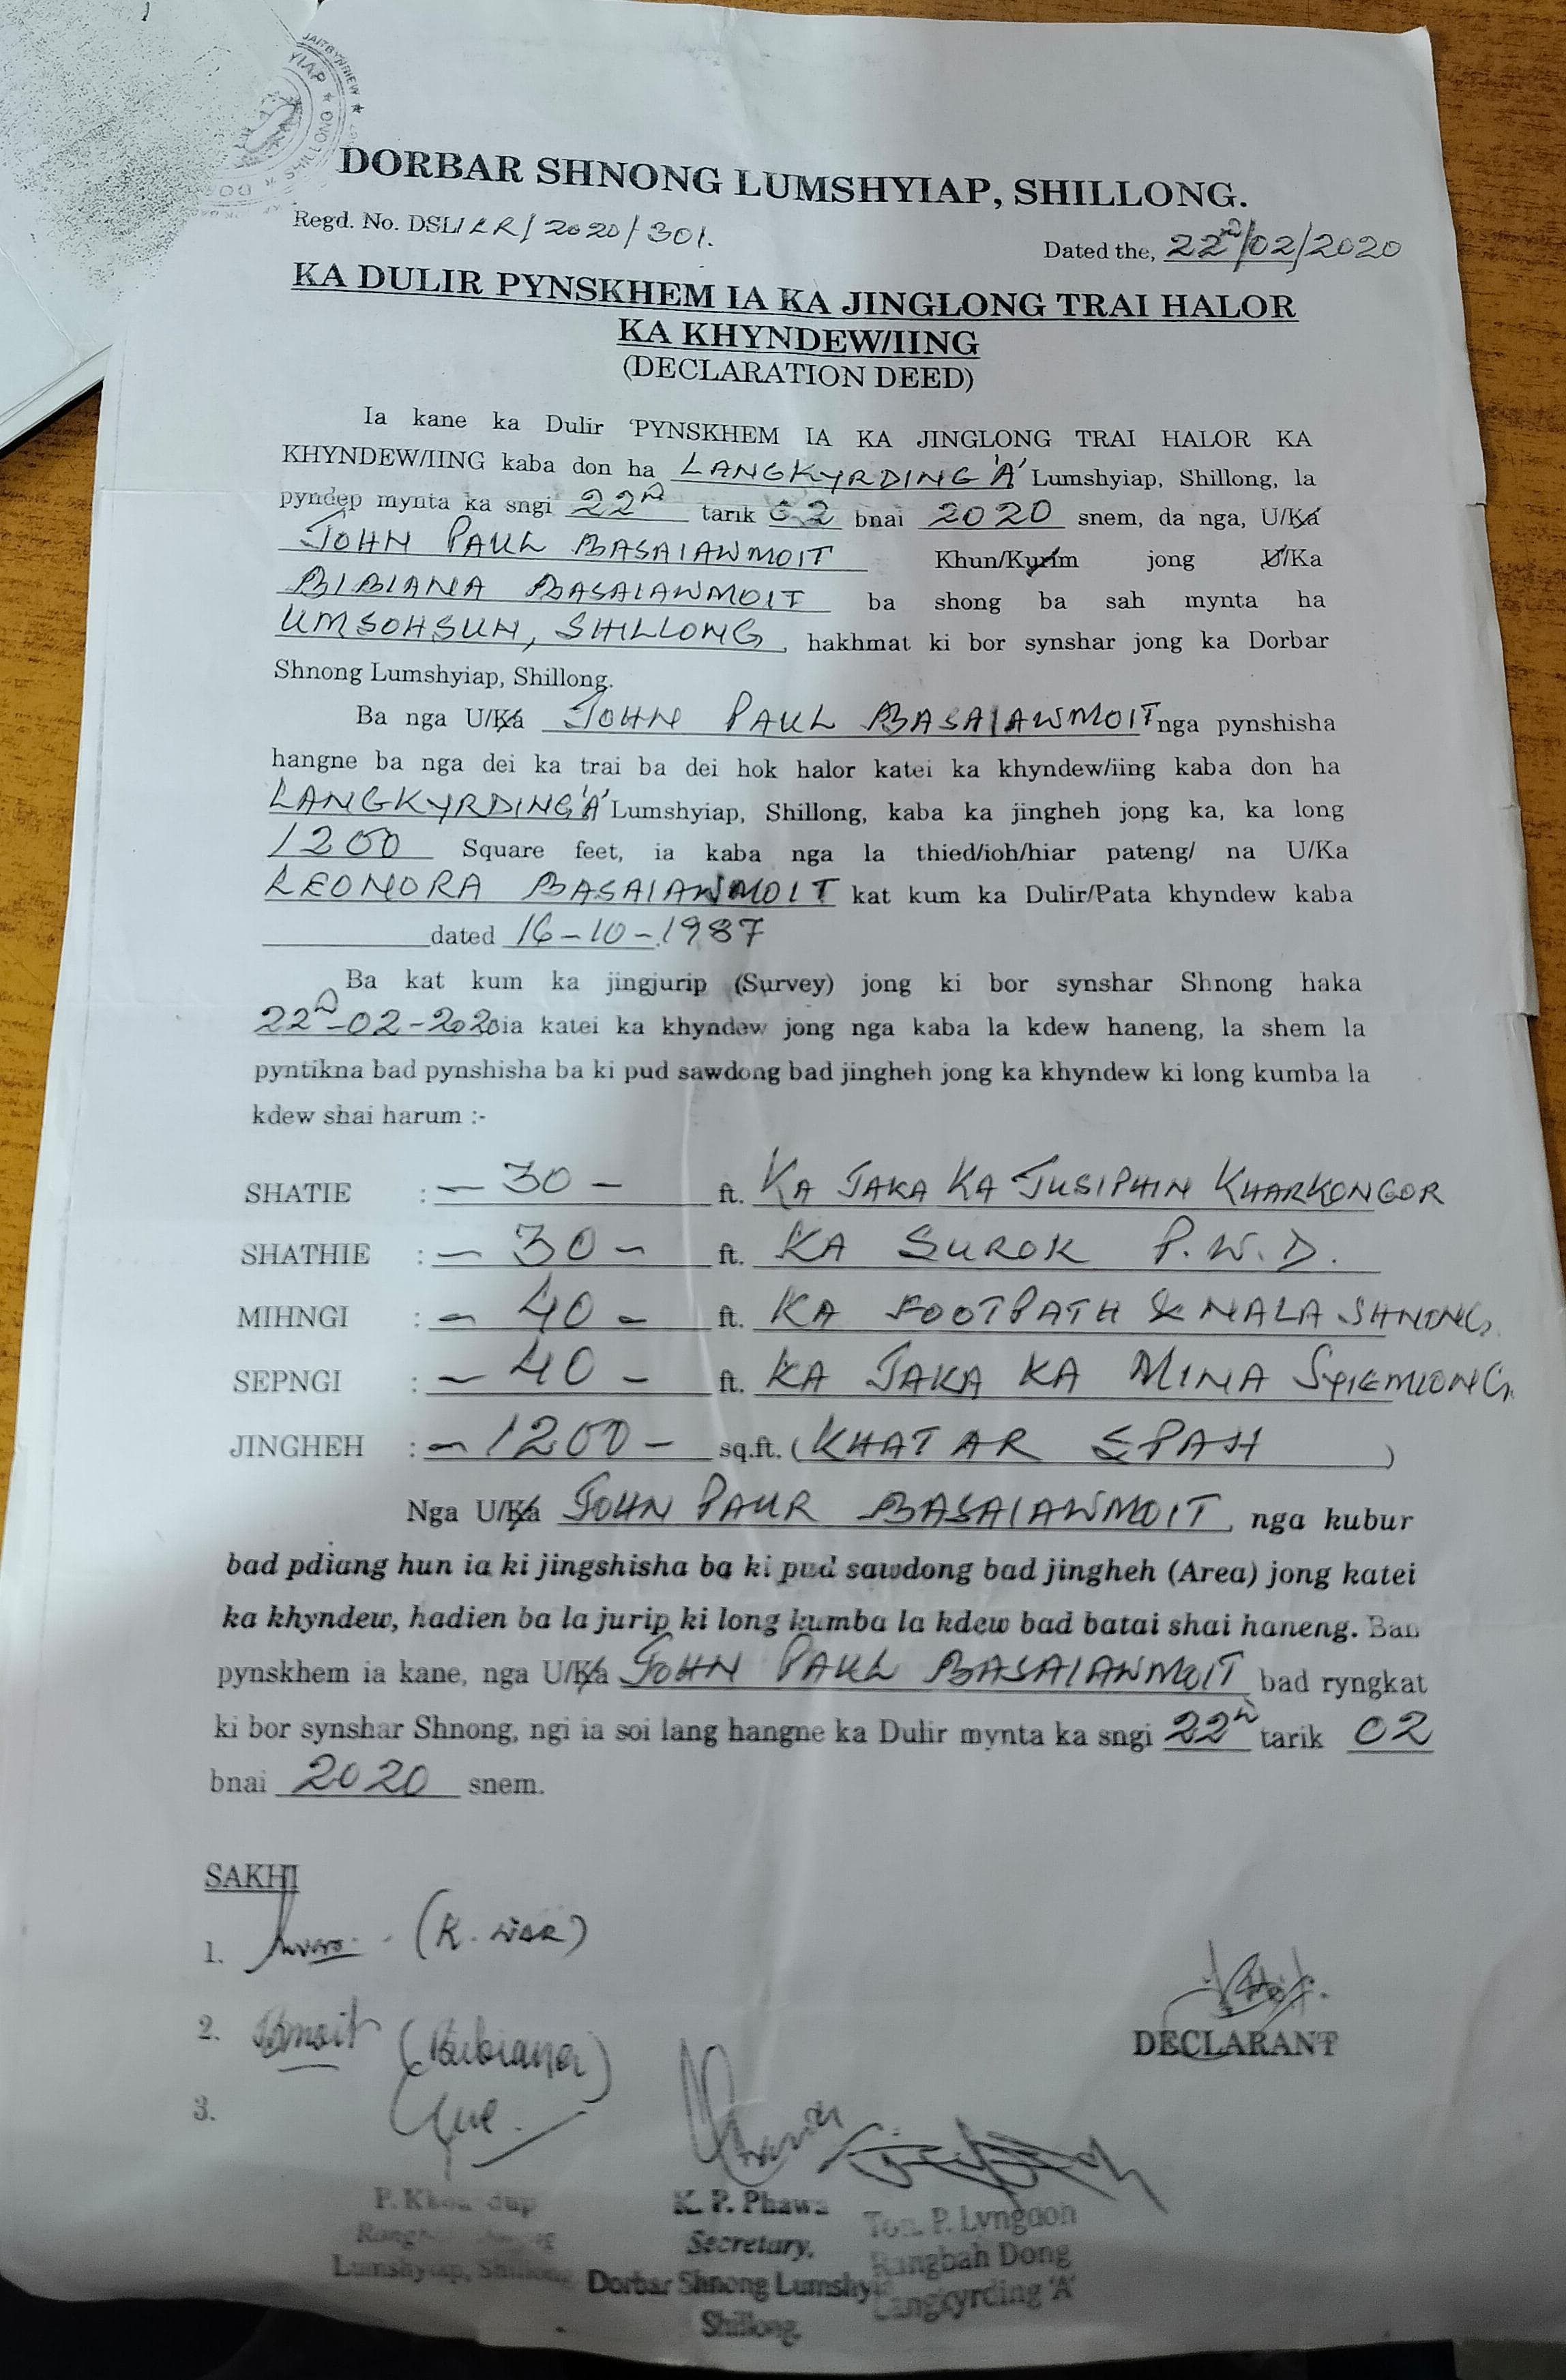 JAITBYNRIEW
YIAP
SHILLONG
DORBAR SHNONG LUMSHYIAP, SHILLONG.
Regd. No. DSL/LR/2020/301.
Dated the, 22nd/02/2020
KA DULIR PYNSKHEM IA KA JINGLONG TRAI HALOR
KA KHYNDEW/IING
(DECLARATION DEED)
Ia kane ka Dulir 'PYNSKHEM IA KA JINGLONG TRAI HALOR KA
KHYNDEW/IING kaba don ha LANGKYRDING 'A' Lumshyiap, Shillong, la
pyndep mynta ka sngi 22nd tarik 02 bnai 2020 snem, da nga, U/Ka
JOHN PAUL BASAIAWMOIT Khun/Kurim jong U/Ka
BIBIANA BASAIAWMOIT ba shong ba sah mynta ha
UMSOHSUN, SHILLONG, hakhmat ki bor synshar jong ka Dorbar
Shnong Lumshyiap, Shillong.
Ba nga U/Ka JOHN PAUL BASAIAWMOIT nga pynshisha
hangne ba nga dei ka trai ba dei hok halor katei ka khyndew/iing kaba don ha
LANGKYRDING 'A' Lumshyiap, Shillong, kaba ka jingheh jong ka, ka long
1200 Square feet, ia kaba nga la thied/ioh/hiar pateng/ na U/Ka
LEONORA BASAIAWMOIT kat kum ka Dulir/Pata khyndew kaba
dated 16-10-1987
Ba kat kum ka jingjurip (Survey) jong ki bor synshar Shnong haka
22nd-02-2020 ia katei ka khyndew jong nga kaba la kdew haneng, la shem la
pyntikna bad pynshisha ba ki pud sawdong bad jingheh jong ka khyndew ki long kumba la
kdew shai harum :-
SHATIE : - 30 - ft. KA JAKA KA JUSIPHIN KHARKONGOR
SHATHIE : - 30 - ft. KA SUROK P.W.D.
MIHNGI : - 40 - ft. KA FOOTPATH & NALA SHNONG
SEPNGI : - 40 - ft. KA JAKA KA MINA SYIEMIONG
JINGHEH : - 1200 - sq.ft. (KHAT AR SPAH)
Nga U/Ka JOHN PAUL BASAIAWMOIT, nga kubur
bad pdiang hun ia ki jingshisha ba ki pud sawdong bad jingheh (Area) jong katei
ka khyndew, hadien ba la jurip ki long kumba la kdew bad batai shai haneng. Ban
pynskhem ia kane, nga U/Ka JOHN PAUL BASAIAWMOIT bad ryngkat
ki bor synshar Shnong, ngi ia soi lang hangne ka Dulir mynta ka sngi 22nd tarik 02
bnai 2020 snem.
SAKHI
1. (K. WAR)
2. Bmoit (Bibiana)
DECLARANT
3.
P.
K. P. Phawa
Secretary,
Dorbar Shnong Lumshyiap
Shillong.
P. Lyngdoh
Rangbah Dong
Langkyrding 'A'
Lumshyiap, Shillong